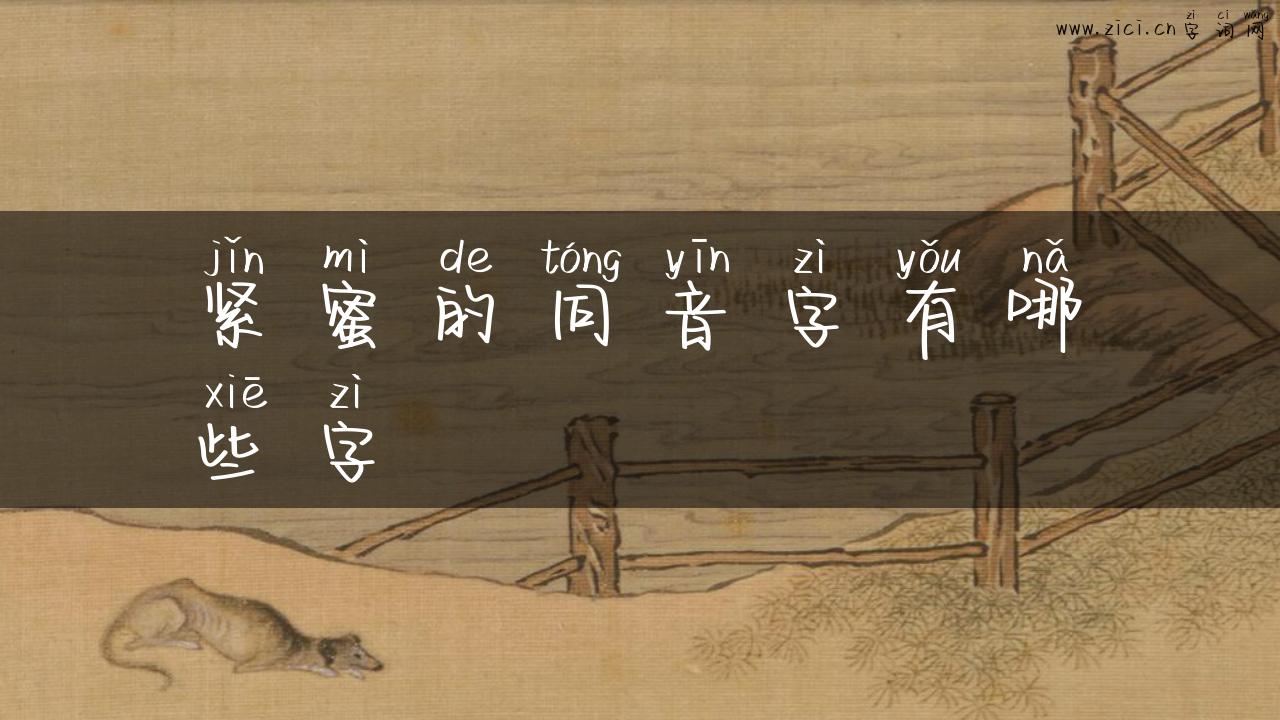 zì cí wǎng
www.zici.cn 字词网
jǐn mì de tóng yīn zì yǒu nǎ
紧蜜的同音字有哪
xiē zì
些字